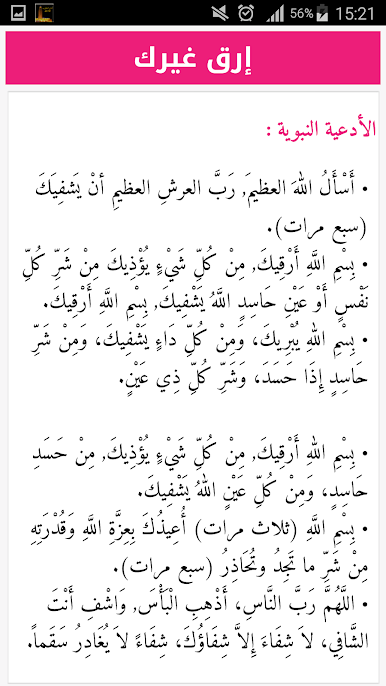 56% 15:21
إرق غيرك
الأدعية النبوية :
• أَسْأَلُ اللهَ العظيمَ, رَبَّ العرشِ العظيمِ أنْ يَشفِيَكَ
(سبع مرات).
• بِسْمِ اللَّهِ أَرْقِيكَ, مِنْ كُلِّ شَيْءٍ يُؤْذِيكَ مِنْ شَرِّ كُلِّ
نَفْسٍ أَوْ عَيْنِ حَاسِدٍ اللَّهُ يَشْفِيكَ, بِسْمِ اللَّهِ أَرْقِيكَ.
• بِسْمِ اللهِ يُبْرِيكَ، وَمِنْ كُلِّ دَاءٍ يَشْفِيكَ، وَمِنْ شَرِّ
حَاسِدٍ إِذَا حَسَدَ، وَشَرِّ كُلِّ ذِي عَيْنٍ.
• بِسْمِ اللهِ أَرْقِيكَ, مِنْ كُلِّ شَيْءٍ يُؤْذِيكَ, مِنْ حَسَدِ
حَاسِدٍ، وَمِنْ كُلِّ عَيْنٍ اللهُ يَشْفِيكَ.
• بِسْمِ اللَّهِ (ثلاث مرات) أُعِيذُكَ بِعِزَّةِ اللَّهِ وَقُدْرَتِهِ
مِنْ شَرِّ ما تَجِدُ وتُحَاذِرُ (سبع مرات).
• اللَّهُمَّ رَبَّ النَّاسِ، أَذْهِبِ الْبَأْسَ, وَاشْفِ أَنْتَ
الشَّافِي، لاَ شِفَاءَ إِلاَّ شِفَاؤُكَ، شِفَاءً لاَ يُغَادِرُ سَقَماً.